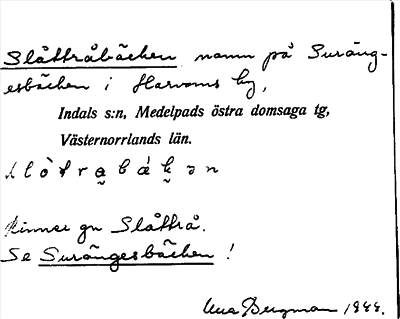 Slåttråbäcken namn på Suräng-
esbäcken i Harvoms by,
Indals s:n, Medelpads östra domsaga tg,
Västernorrlands län.
Rinner gn Slåttrå.
Se Surängesbäcken !
Bergman 1944.